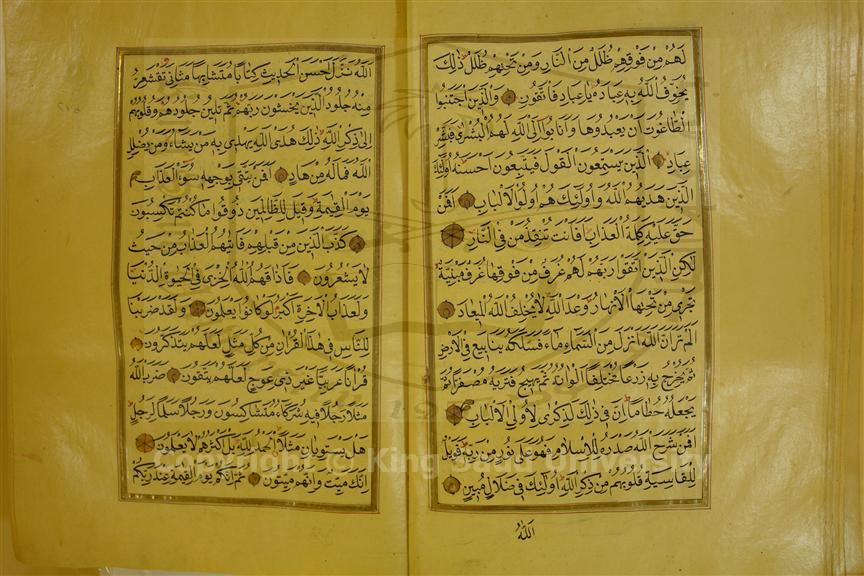 لَهُمْ مِنْ فَوْقِهِمْ ظُلَلٌ مِنَ النَّارِ وَمِنْ تَحْتِهِمْ ظُلَلٌ ذٰلِكَ
يُخَوِّفُ اللّٰهُ بِهِ عِبَادَهُ يَا عِبَادِ فَاتَّقُونِ وَالَّذِينَ اجْتَنَبُوا
الطَّاغُوتَ اَنْ يَعْبُدُوهَا وَاَنَابُوا اِلَى اللّٰهِ لَهُمُ الْبُشْرٰى فَبَشِّرْ
عِبَادِ الَّذِينَ يَسْتَمِعُونَ الْقَوْلَ فَيَتَّبِعُونَ اَحْسَنَهُ اُولٰئِكَ
الَّذِينَ هَدٰيهُمُ اللّٰهُ وَاُولٰئِكَ هُمْ اُولُوا الْاَلْبَابِ اَفَمَنْ
حَقَّ عَلَيْهِ كَلِمَةُ الْعَذَابِ اَفَاَنْتَ تُنْقِذُ مَنْ فِي النَّارِ
لٰكِنِ الَّذِينَ اتَّقَوْا رَبَّهُمْ لَهُمْ غُرَفٌ مِنْ فَوْقِهَا غُرَفٌ مَبْنِيَّةٌ
تَجْرِي مِنْ تَحْتِهَا الْاَنْهَارُ وَعْدَ اللّٰهِ لَا يُخْلِفُ اللّٰهُ الْمِيعَادَ
اَلَمْ تَرَ اَنَّ اللّٰهَ اَنْزَلَ مِنَ السَّمَاءِ مَاءً فَسَلَكَهُ يَنَابِيعَ فِي الْاَرْضِ
ثُمَّ يُخْرِجُ بِهِ زَرْعًا مُخْتَلِفًا اَلْوَانُهُ ثُمَّ يَهِيجُ فَتَرٰيهُ مُصْفَرًّا ثُمَّ
يَجْعَلُهُ حُطَامًا اِنَّ فِي ذٰلِكَ لَذِكْرٰى لِاُولِي الْاَلْبَابِ
اَفَمَنْ شَرَحَ اللّٰهُ صَدْرَهُ لِلْاِسْلَامِ فَهُوَ عَلٰى نُورٍ مِنْ رَبِّهِ فَوَيْلٌ
لِلْقَاسِيَةِ قُلُوبُهُمْ مِنْ ذِكْرِ اللّٰهِ اُولٰئِكَ فِي ضَلَالٍ مُبِينٍ
اَللّٰهُ
اَللّٰهُ نَزَّلَ اَحْسَنَ الْحَدِيثِ كِتَابًا مُتَشَابِهًا مَثَانِيَ تَقْشَعِرُّ
مِنْهُ جُلُودُ الَّذِينَ يَخْشَوْنَ رَبَّهُمْ ثُمَّ تَلِينُ جُلُودُهُمْ وَقُلُوبُهُمْ
اِلٰى ذِكْرِ اللّٰهِ ذٰلِكَ هُدَى اللّٰهِ يَهْدِي بِهِ مَنْ يَشَاءُ وَمَنْ يُضْلِلِ
اللّٰهُ فَمَا لَهُ مِنْ هَادٍ اَفَمَنْ يَتَّقِي بِوَجْهِهِ سُوءَ الْعَذَابِ
يَوْمَ الْقِيٰمَةِ وَقِيلَ لِلظَّالِمِينَ ذُوقُوا مَا كُنْتُمْ تَكْسِبُونَ
كَذَّبَ الَّذِينَ مِنْ قَبْلِهِمْ فَاَتٰيهُمُ الْعَذَابُ مِنْ حَيْثُ
لَا يَشْعُرُونَ فَاَذَاقَهُمُ اللّٰهُ الْخِزْيَ فِي الْحَيٰوةِ الدُّنْيَا
وَلَعَذَابُ الْاٰخِرَةِ اَكْبَرُ لَوْ كَانُوا يَعْلَمُونَ وَلَقَدْ ضَرَبْنَا
لِلنَّاسِ فِي هٰذَا الْقُرْاٰنِ مِنْ كُلِّ مَثَلٍ لَعَلَّهُمْ يَتَذَكَّرُونَ
قُرْاٰنًا عَرَبِيًّا غَيْرَ ذِي عِوَجٍ لَعَلَّهُمْ يَتَّقُونَ ضَرَبَ اللّٰهُ
مَثَلًا رَجُلًا فِيهِ شُرَكَاءُ مُتَشَاكِسُونَ وَرَجُلًا سَلَمًا لِرَجُلٍ
هَلْ يَسْتَوِيَانِ مَثَلًا اَلْحَمْدُ لِلّٰهِ بَلْ اَكْثَرُهُمْ لَا يَعْلَمُونَ
اِنَّكَ مَيِّتٌ وَاِنَّهُمْ مَيِّتُونَ ثُمَّ اِنَّكُمْ يَوْمَ الْقِيٰمَةِ عِنْدَ رَبِّكُمْ
Copyright © King Saud University